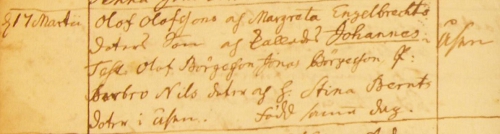 d 17 Martii Olof Olofsons af Margreta Engelbrechts
doters Son af Kallads Johannes. Åsen
Test. Olof Börgeson Jonas Börgeson P:
Berbro Nils doter af H: Stina Bernts
doter i Åsen. Född samma dag.